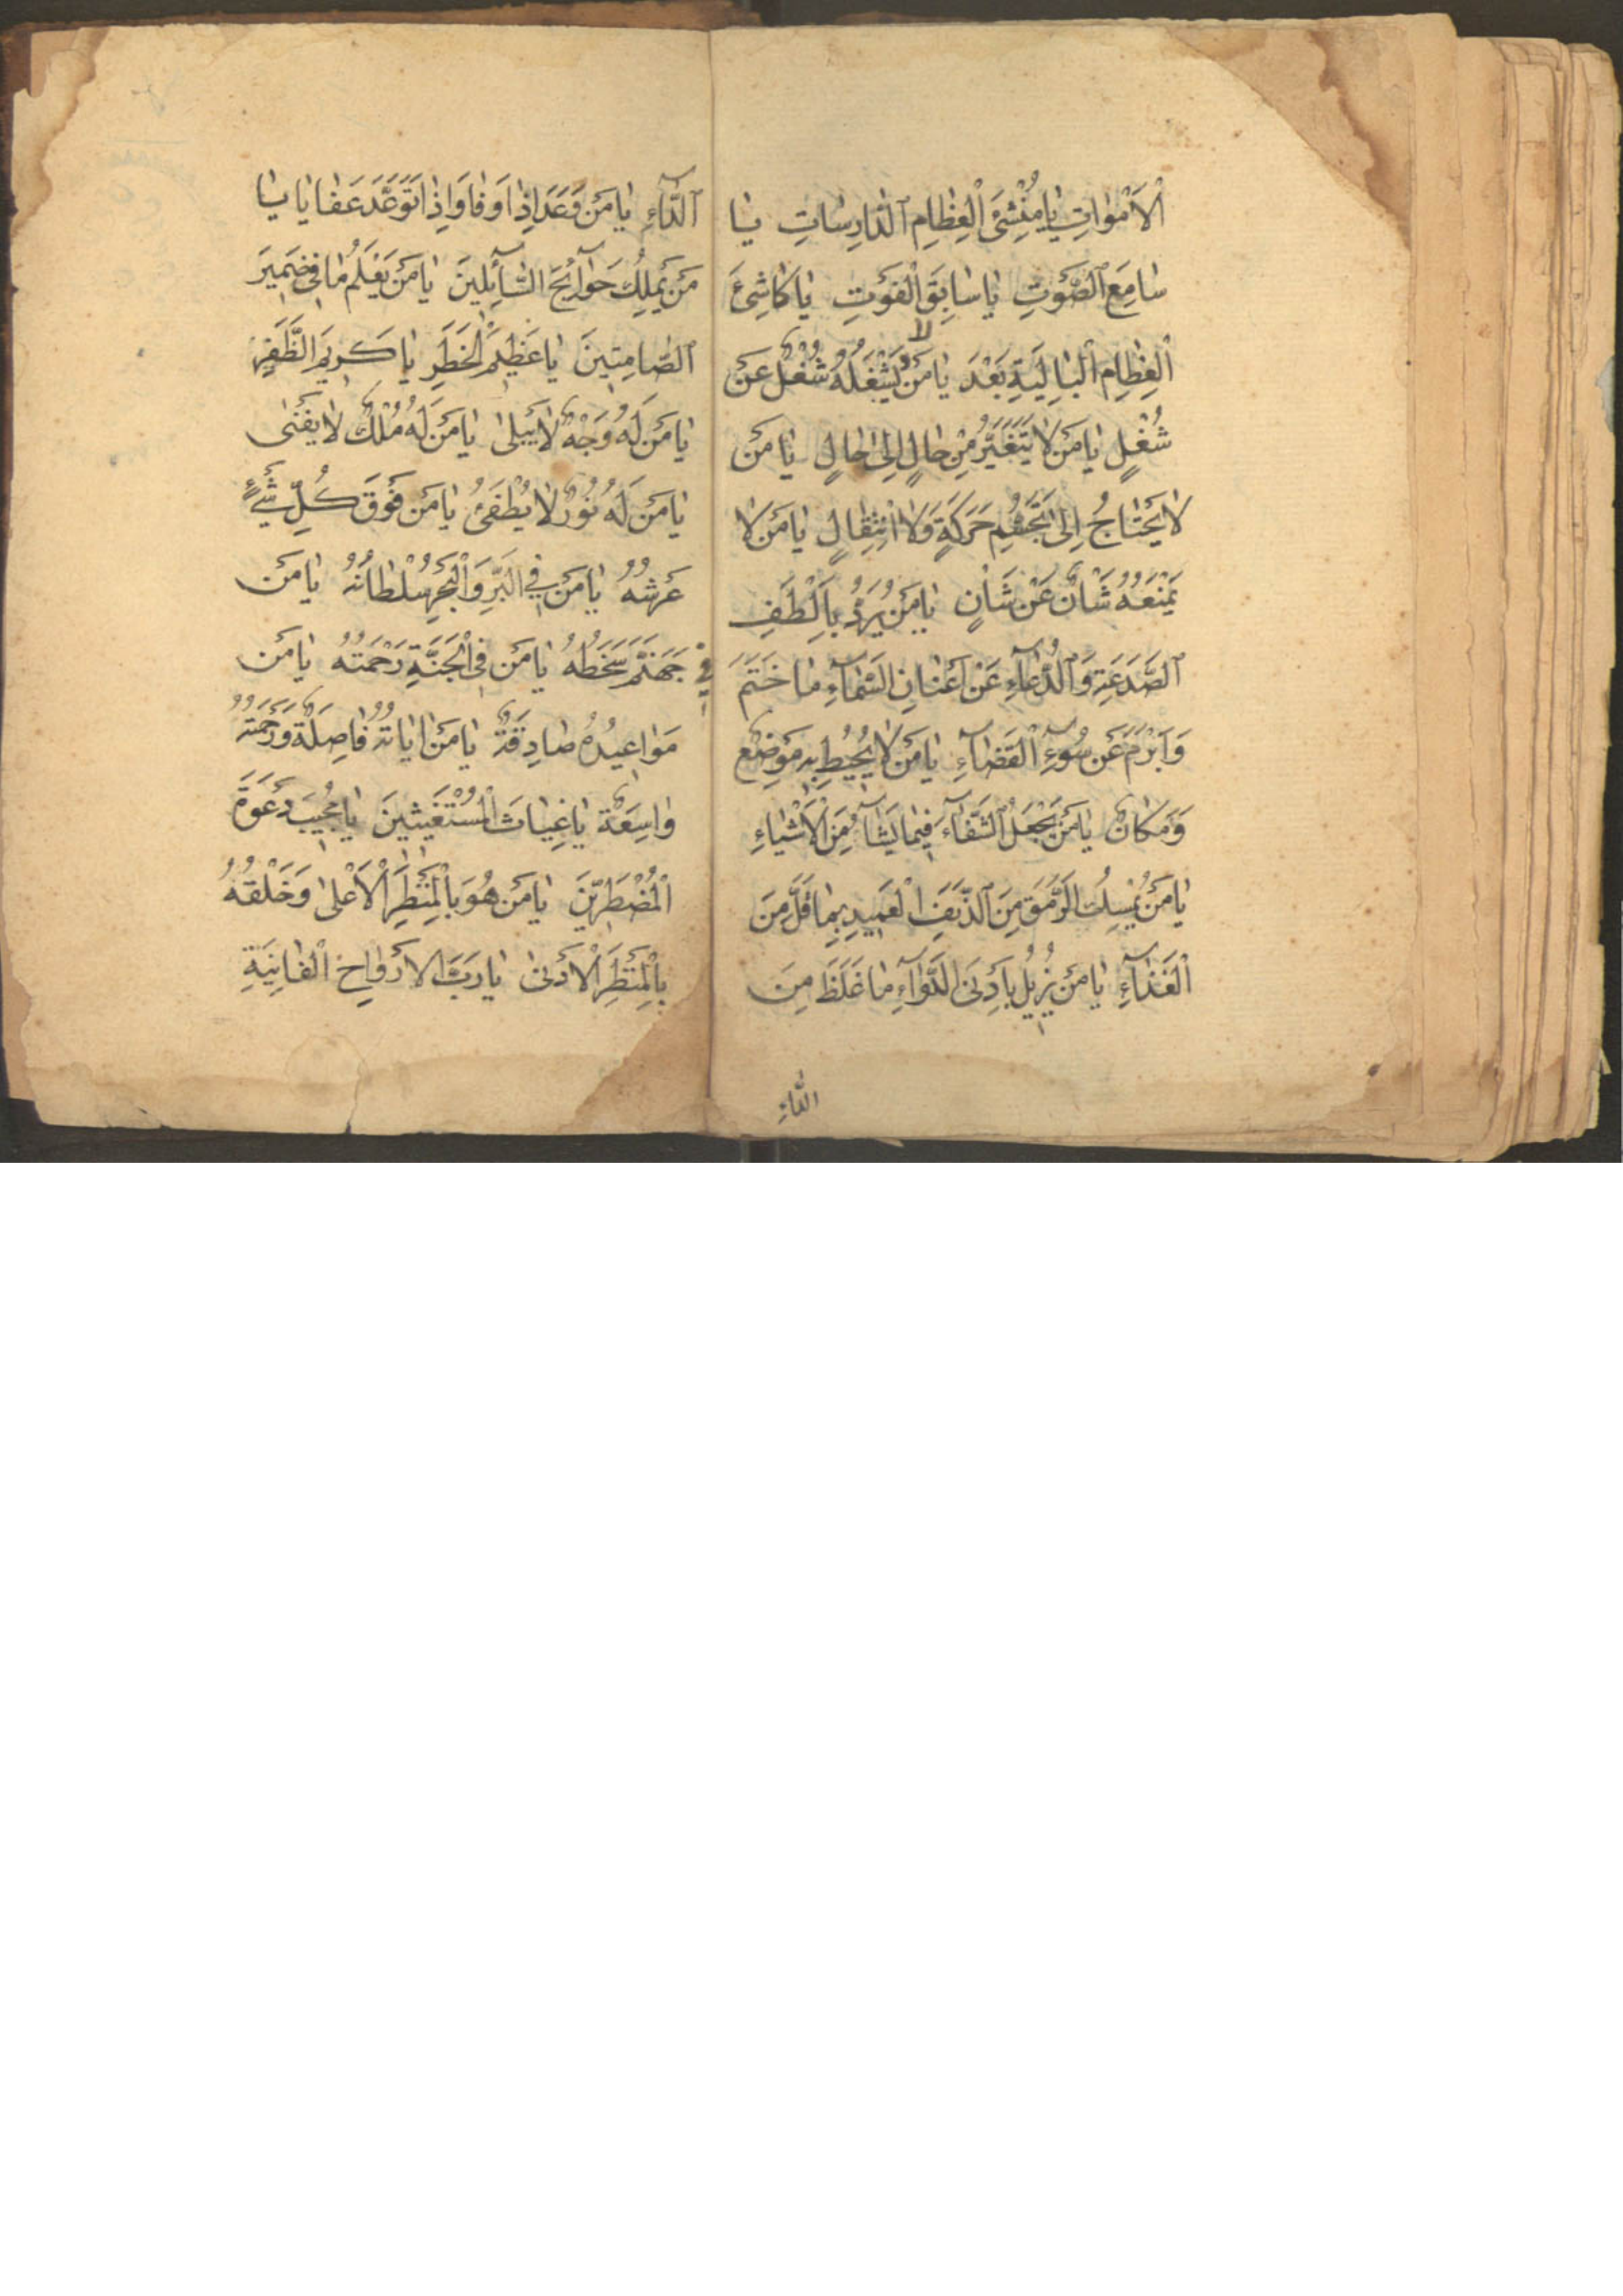 اَلْاَمْوٰاتِ يٰا مُنْشِئَ الْعِظٰامِ الدّٰارِسٰاتِ يٰا
سٰامِعَ الصَّوْتِ يٰا سٰابِقَ الْفَوْتِ يٰا كٰاشِئَ
الْعِظٰامِ الْبٰالِيَةِ بَعْدَ يٰا مَنْ لا يَشْغَلُهُ شُغْلٌ عَنْ
شُغْلٍ يٰا مَنْ لٰا يَتَغَيَّرُ مِنْ حٰالٍ اِلىٰ حٰالٍ يٰا مَنْ
لٰا يَحْتٰاجُ اِلىٰ تَجَشُّمِ حَرَكَةٍ وَلٰا انْتِقٰالٍ يٰا مَنْ لٰا
يَمْنَعُهُ شَاْنٌ عَنْ شَاْنٍ يٰا مَنْ يَرُدُّ بِاَلْطَفِ
الصَّدَقَةِ وَالدُّعٰآءِ عَنْ اَعْنٰانِ السَّمٰآءِ مٰا حَتَمَ
وَاَبْرَمَ عَنْ سُوۤءِ الْقَضٰآءِ يٰا مَنْ لٰا يُحيٖطُ بِهٖ مَوْضِعٌ
وَمَكٰانٌ يٰا مَنْ يَجْعَلُ الشَّفٰآءَ فيٖمٰا يَشٰآءُ مِنَ الْاَشْيٰاءِ
يٰا مَنْ يُمْسِكُ الرَّمَقَ مِنَ الدَّنَفِ الْعَميٖدِ بِمٰا قَلَّ مِنَ
الْغَذٰآءِ يٰا مَنْ يُزيٖلُ بِاَدْنَى الدَّوٰآءِ مٰا غَلَظَ مِنَ
الدّٰاءِ
الدّٰآءِ يٰا مَنْ وَعَدَ اِذٰا اَوْفٰا وَاِذٰا تَوَعَّدَ عَفٰا يٰا يٰا
مَنْ يَمْلِكُ حَوٰآئِجَ السّٰآئِليٖنَ يٰا مَنْ يَعْلَمُ مٰا فيٖ ضَميٖرِ
الصّٰامِتيٖنَ يٰا عَظيٖمَ الْخَطَرِ يٰا كَريٖمَ الظَّفَرِ
يٰا مَنْ لَهُ وَجْهٌ لٰا يَبْلىٰ يٰا مَنْ لَهُ مُلْكٌ لٰا يَفْنىٰ
يٰا مَنْ لَهُ نُورٌ لٰا يُطْفَئُ يٰا مَنْ فَوْقَ كُلِّ شَيْءٍ
عَرْشُهُ يٰا مَنْ فِي الْبَرِّ وَالْبَحْرِ سُلْطٰانُهُ يٰا مَنْ
فيٖ جَهَنَّمَ سَخَطُهُ يٰا مَنْ فِى الْجَنَّةِ رَحْمَتُهُ يٰا مَنْ
مَوٰاعيٖدُهُ صٰادِقَةٌ يٰا مَنْ اٰيٰاتُهُ فٰاصِلَةٌ وَرَحْمَتُهُ
وٰاسِعَةٌ يٰا غِيٰاثَ الْمُسْتَغيٖثيٖنَ يٰا مُجيٖبَ دَعْوَةِ
الْمُضْطَرّيٖنَ يٰا مَنْ هُوَ بِالْمَنْظَرِ الْاَعْلىٰ وَخَلْقُهُ
بِالْمَنْظَرِ الْاَدْنىٰ يٰا رَبَّ الْاَرْوٰاحِ الْفٰانِيَةِ